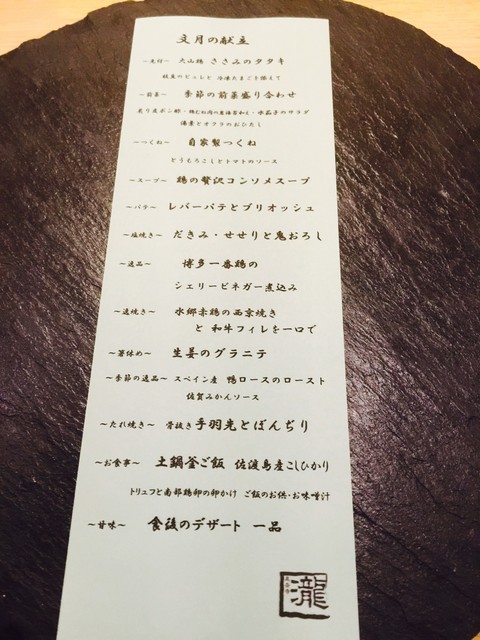 文月の献立
～先付～ 大山鶏 ささみのタタキ
枝豆のピュレと 冷凍たまごを添えて
～前菜～ 季節の前菜盛り合わせ
炙り皮ポン酢・鶏むね肉の生海苔和え・水茄子のサラダ
湯葉とオクラのおひたし
～つくね～ 自家製つくね
とうもろこしとトマトのソース
～スープ～ 鶏の贅沢コンソメスープ
～パテ～ レバーパテとブリオッシュ
～塩焼き～ だきみ・せせりと鬼おろし
～逸品～ 博多一番鶏の
シェリービネガー煮込み
～逸焼き～ 水郷赤鶏の西京焼き
と 和牛フィレを一口で
～箸休め～ 生姜のグラニテ
～季節の逸品～ スペイン産 鴨ロースのロースト
佐賀みかんソース
～たれ焼き～ 骨抜き手羽先とぼんぢり
～お食事～ 土鍋釜ご飯 佐渡島産こしひかり
トリュフと南部鶏卵の卵かけ ご飯のお供・お味噌汁
～甘味～ 食後のデザート 一品
瀧